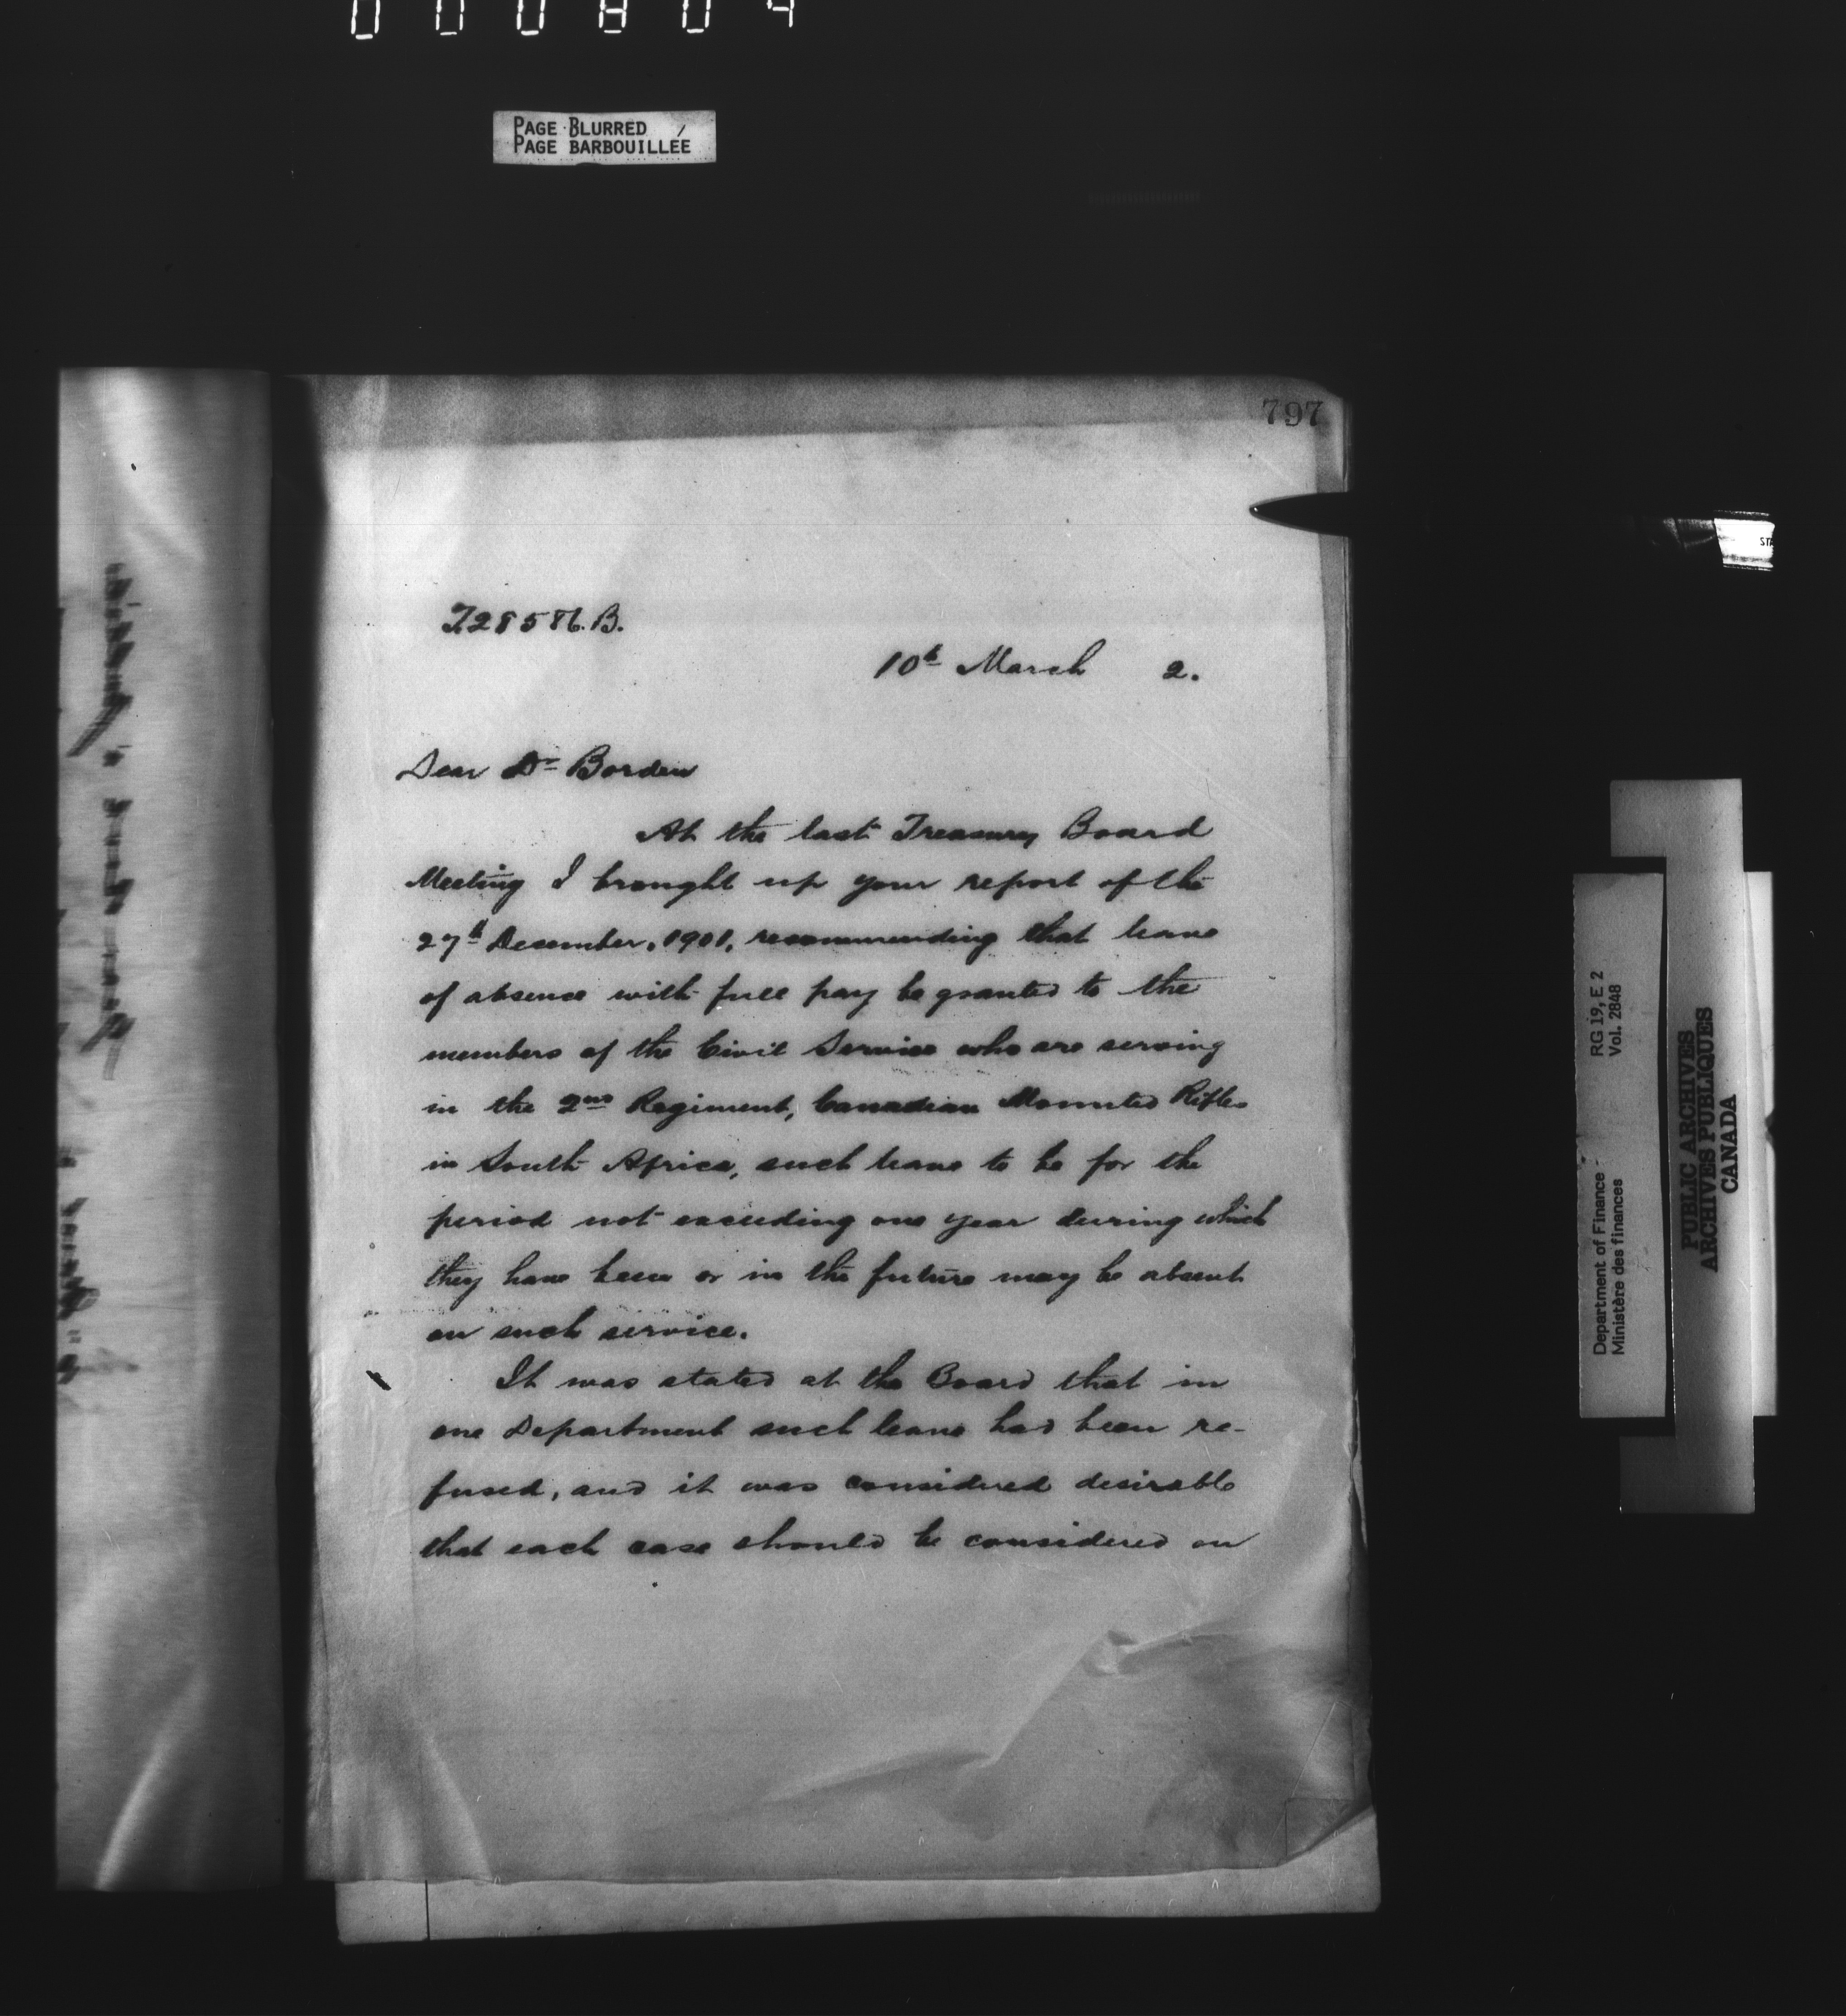 000804
PAGE BLURRED
PAGE BARBOUILLÉE
797
10th March 2.
Dear Dr Borden
At the last Treasury Board
Meeting I brought up your report of the
27th December, 1901, recommending that leave
of absence with full pay be granted to the
members of the Civil Service who are serving
in the 2nd Regiment, Canadian Mounted Rifles
in South Africa, such leave to be for the
period not exceeding one year during which
they have been or in the future may be absent
on such service.
It was stated at the Board that in
one Department such leave had been re-
fused, and it was considered desirable
that each case should be considered on
Department of Finance - RG 19, E 2
Ministère des finances Vol. 2848
PUBLIC ARCHIVES
ARCHIVES PUBLIQUES
CANADA